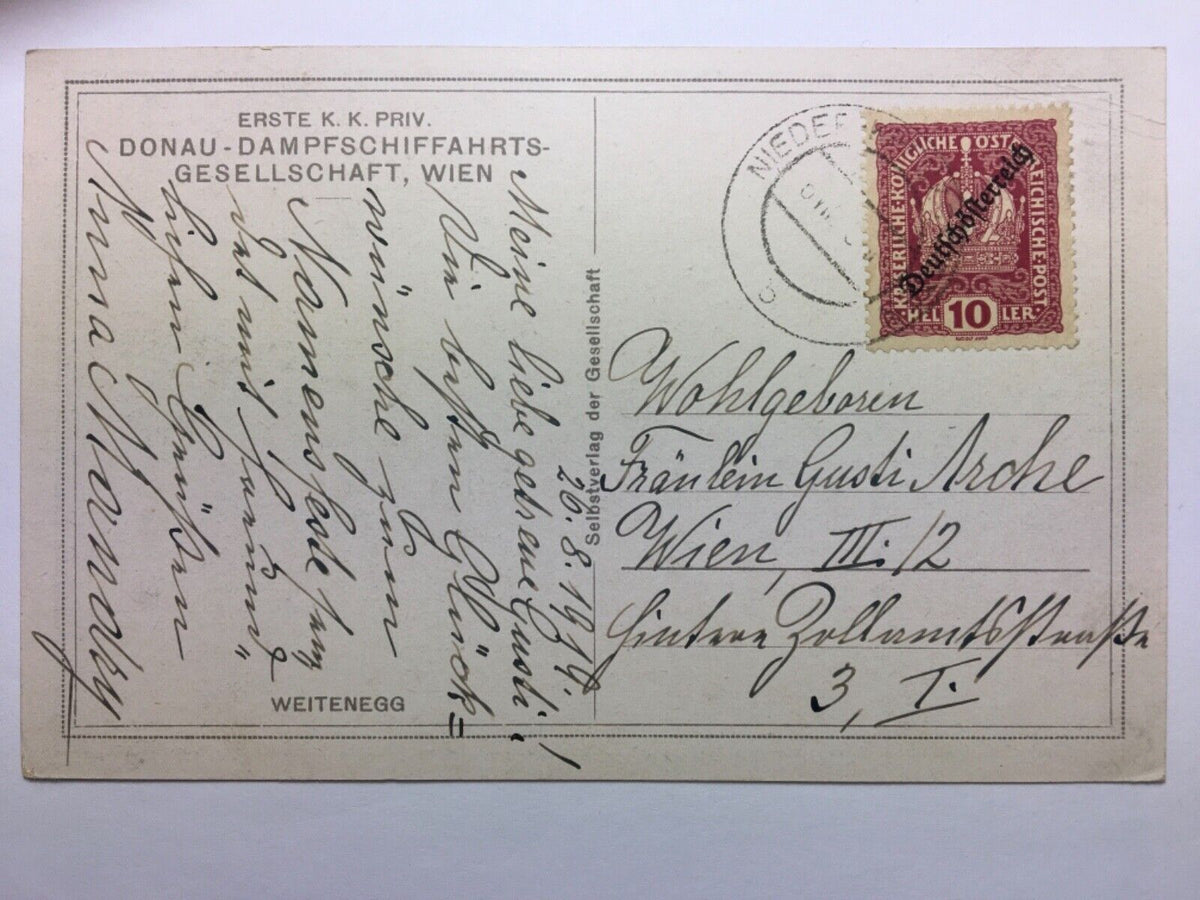 ERSTE K. K. PRIV.
DONAU-DAMPFSCHIFFAHRTS-
GESELLSCHAFT, WIEN
26.8.1919.
Meine liebe getreue Gusti!
Die besten Glück=
wünsche zum
Namensfeste
und
lichen Grüßen
Anna
WEITENEGG
Selbstverlag der Gesellschaft
NIEDER
KAISERLICHE KÖNIGLICHE ÖSTERREICHISCHE POST
Deutschösterreich
HEL 10 LER
Wohlgeboren
Fräulein Gusti Arche
Wien, III./2
Hintere Zollamtsstraße
3, I.